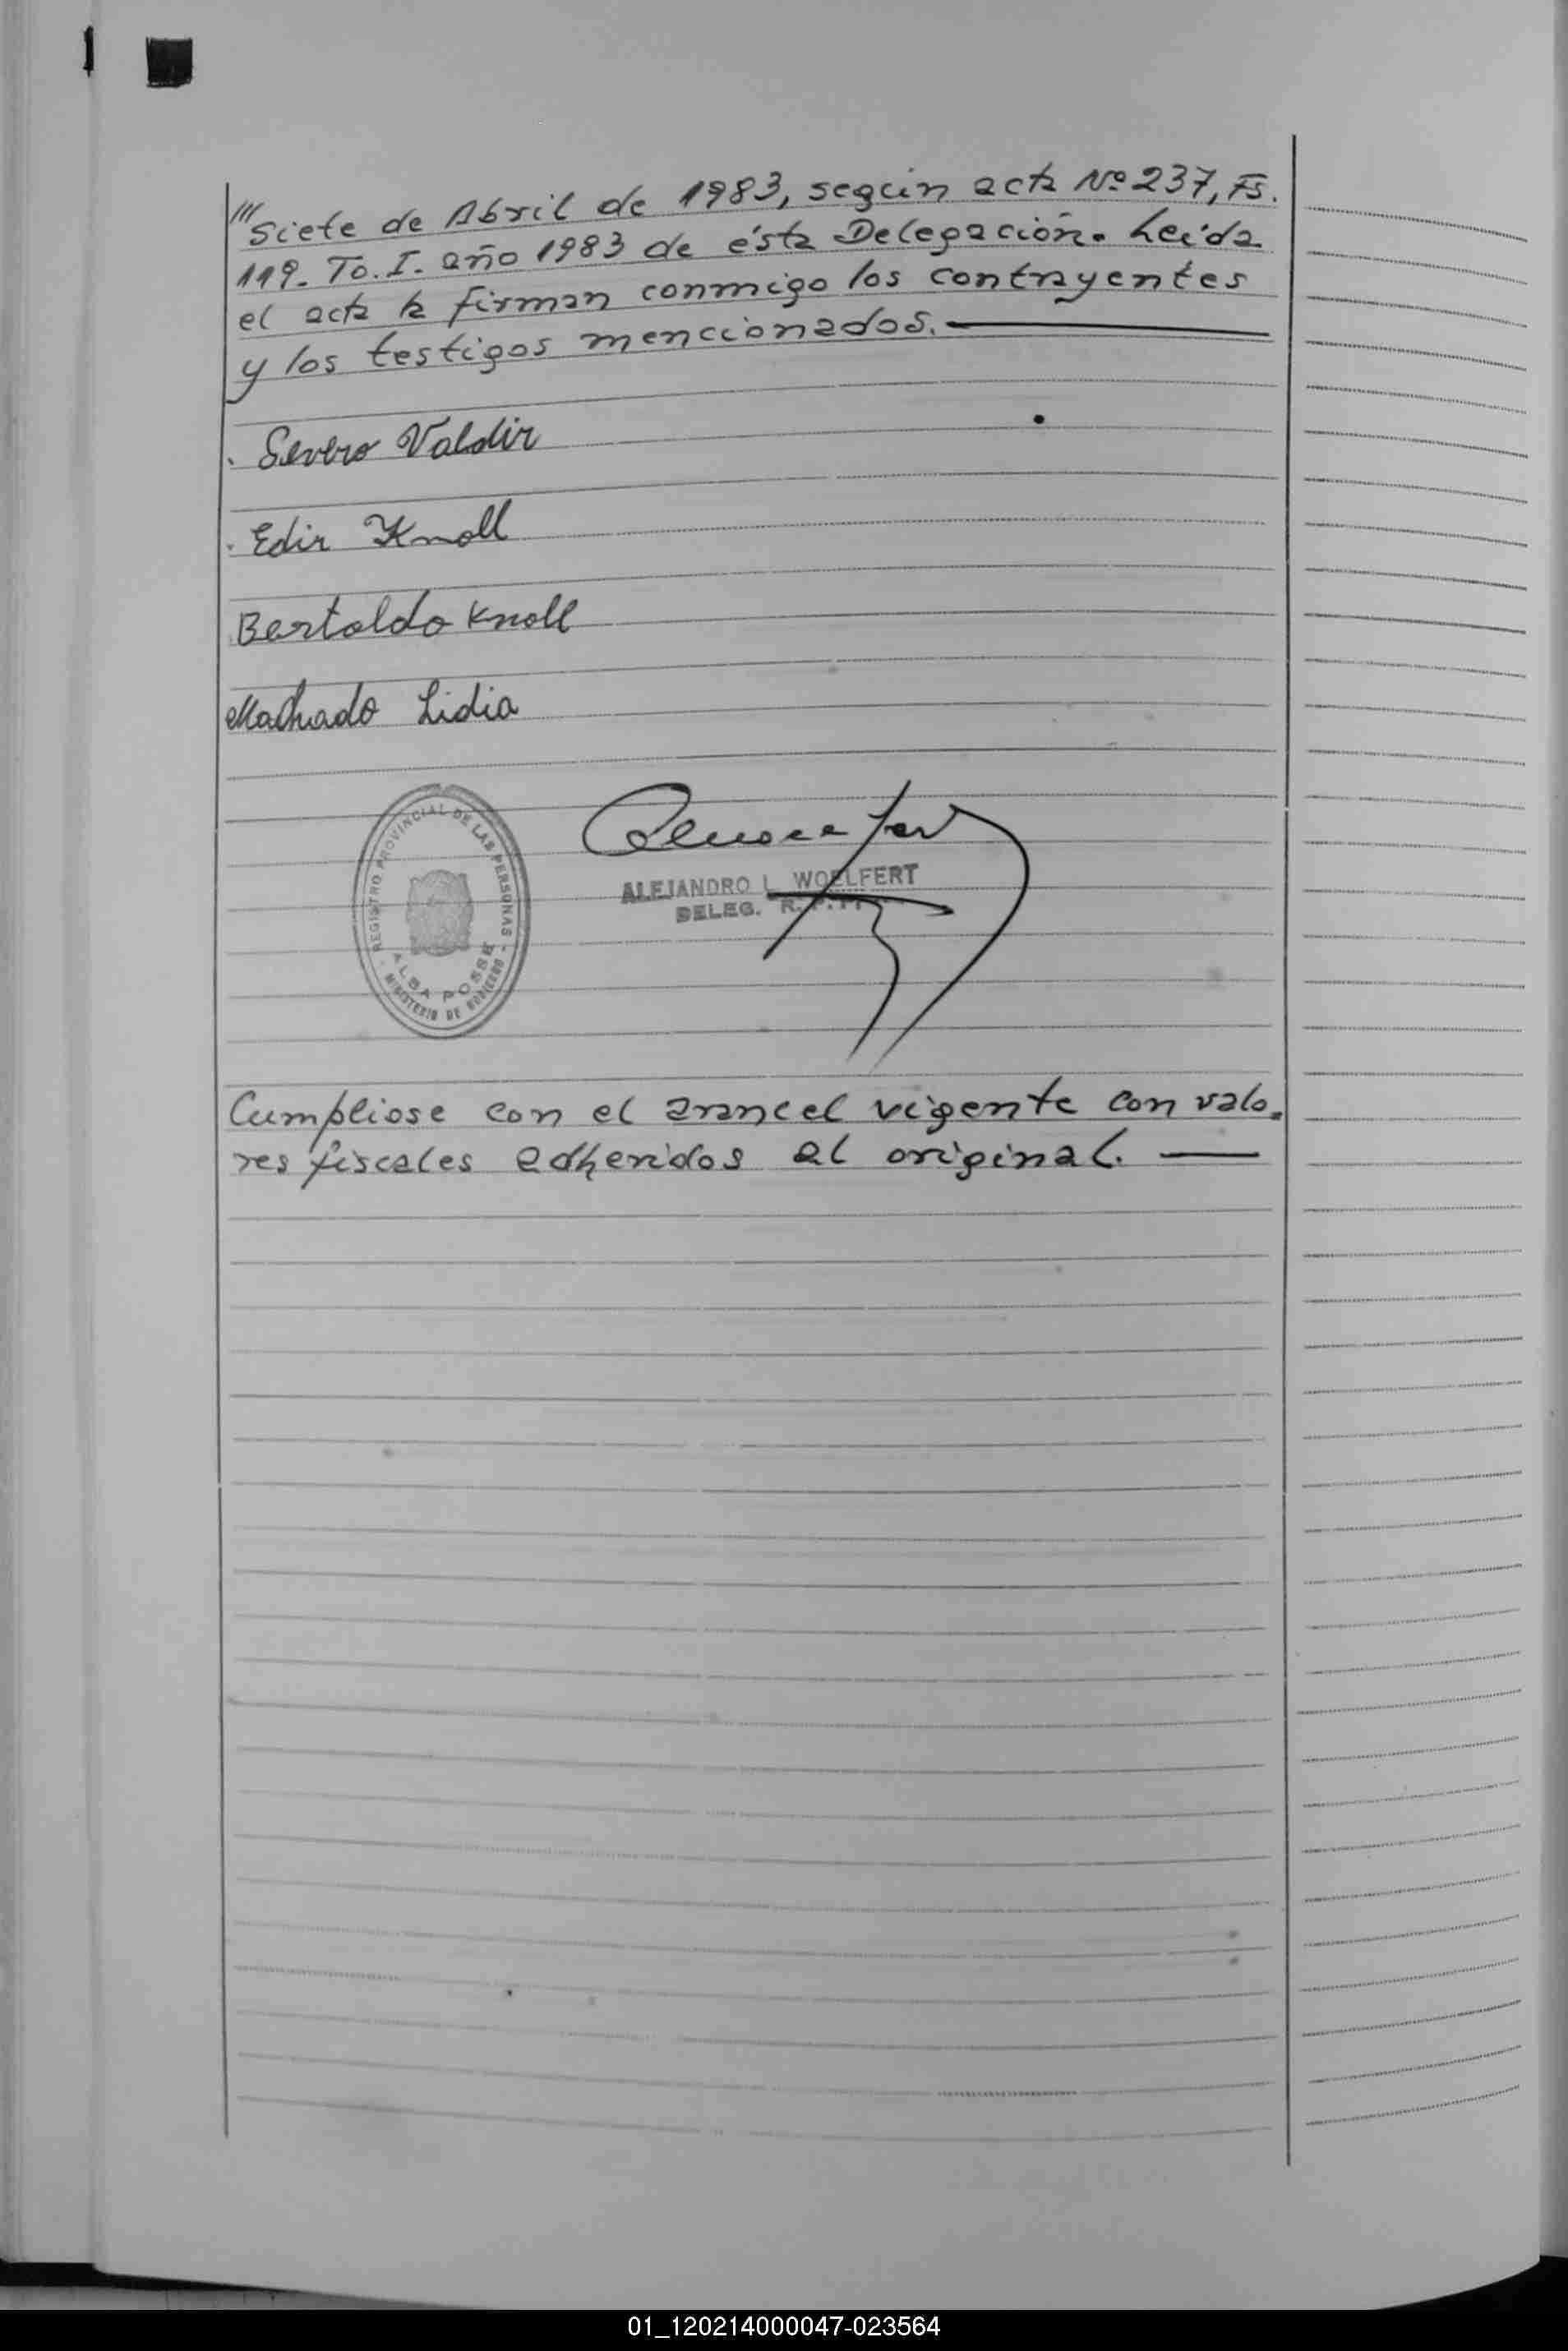 /// Siete de Abril de 1983, según acta Nº 237, Fs.
119. To. I. año 1983 de ésta Delegación. Leída
el acta la firman conmigo los contrayentes
y los testigos mencionados.
Severo Valdir
Edir Knoll
Bertoldo Knoll
Machado Lidia
REGISTRO PROVINCIAL DE LAS PERSONAS
ALBA POSSE
MINISTERIO DE GOBIERNO
ALEJANDRO L. WOELFERT
DELEG. R.P.
Cumpliose con el arancel vigente con valo-
res fiscales adheridos al original.
01_120214000047-023564